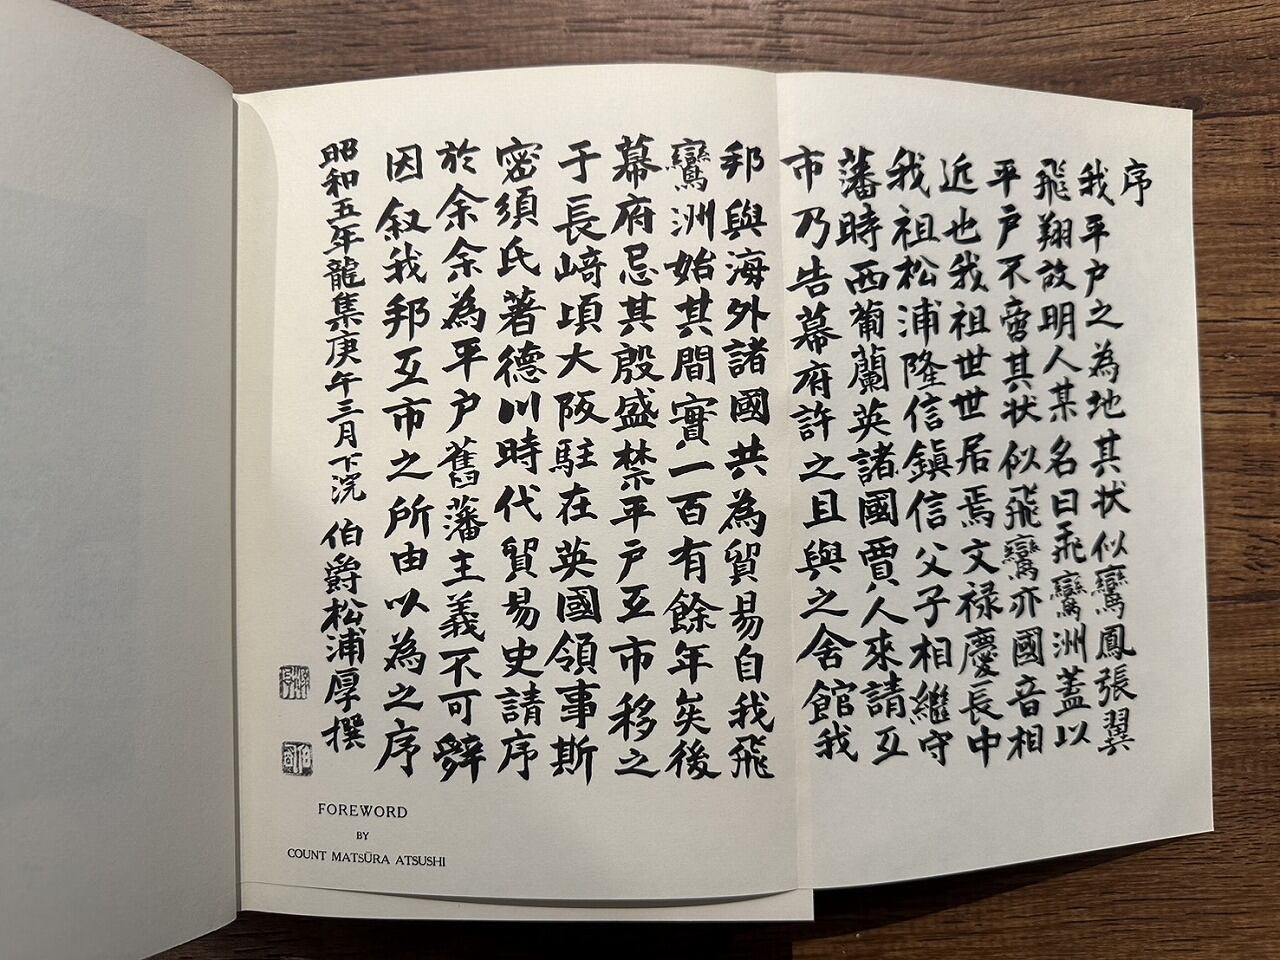 序
我平戸之為地其状似鸞鳳張翼
飛翔故明人某名曰飛鸞洲蓋以
平戸不啻其状似飛鸞亦國音相
近也我祖世世居焉文禄慶長中
我祖松浦隆信鎮信父子相繼守
藩時西葡蘭英諸國賈人來請互
市乃告幕府許之且與之舍館我
邦與海外諸國共為貿易自我飛
鸞洲始其間實一百有餘年矣後
幕府忌其殷盛禁平戸互市移之
于長﨑頃大阪駐在英國領事斯
密須氏著德川時代貿易史請序
於余余為平戸舊藩主義不可辤
因叙我邦互市之所由以為之序
昭和五年龍集庚午三月下浣 伯爵松浦厚撰
FOREWORD
BY
COUNT MATSŪRA ATSUSHI